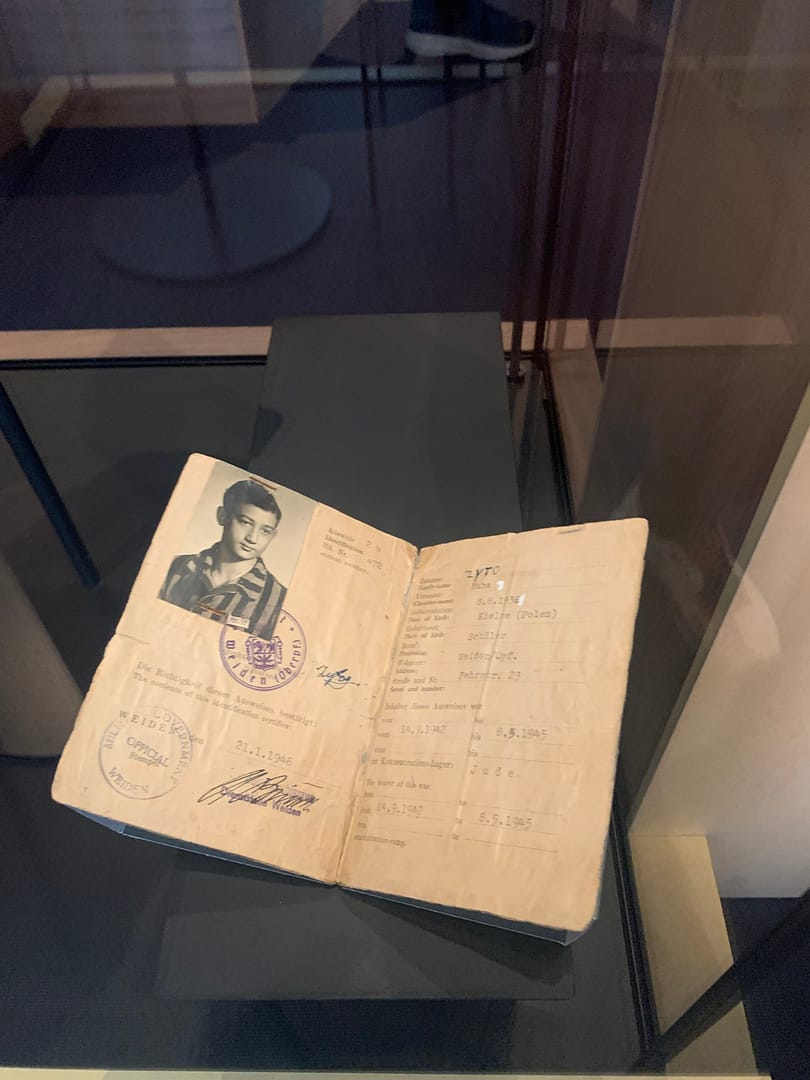 Ausweis
Identification 2 b
lfd. Nr.: 472
current number:
t *
Weiden (Oberpf.)
Zyto
Die Richtigkeit dieses Ausweises bestätigt:
The contents of this identification certifies:
WEIDEN, den 21.1.1946
GOVERNMENT
OFFICIAL
Stempel
WEIDEN
Weiden
Zuname: ZYTO
Family-name
Vorname: Kuba
Christian-name
Geburtsdatum: 8.8.193
Date of birth:
Geburtsort: Kielce (Polen)
Place of birth:
Beruf: Schüler
Profession:
Wohnort: Weiden/Opf.
Address:
Straße und Nr. Fehrstr. 23
Street and number:
Inhaber dieses Ausweises war
vom bis
vom 14.9.1942 bis 8.5.1945
vom bis
im Konzentrations-Lager:
Jude
The bearer of this was
from to
from 14.9.1942 to 8.5.1945
from to
concentration-camp.